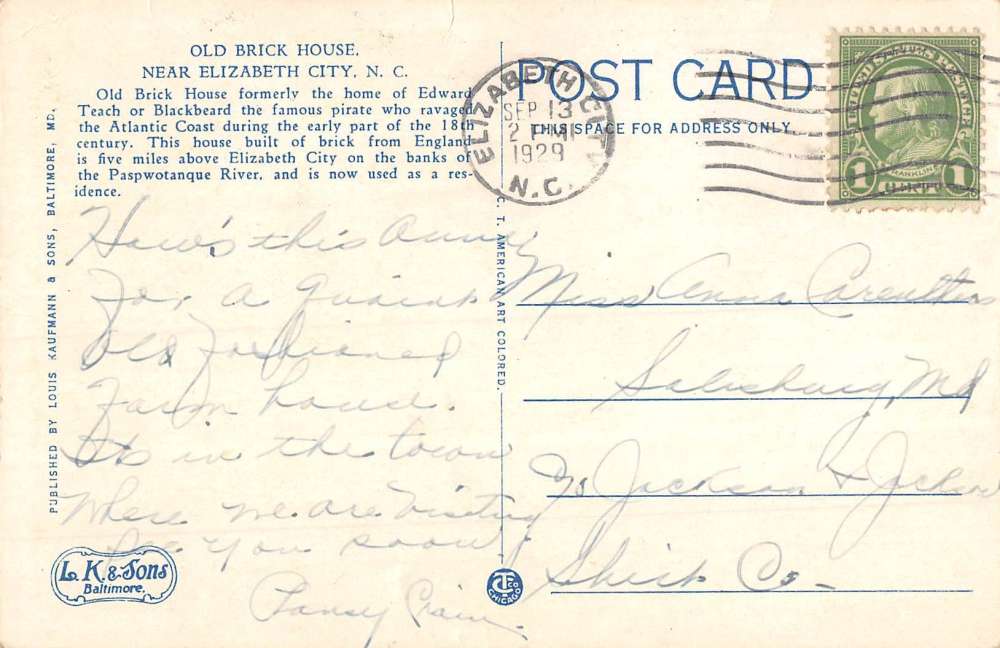 OLD BRICK HOUSE,
NEAR ELIZABETH CITY, N. C.
Old Brick House formerly the home of Edward
Teach or Blackbeard the famous pirate who ravaged
the Atlantic Coast during the early part of the 18th
century. This house built of brick from England
is five miles above Elizabeth City on the banks of
the Paspwotanque River, and is now used as a res-
idence.
How's this Anna
For a quaint
old fashioned
Farm house.
Its in the town
where we are visiting
See you soon
Pansy
PUBLISHED BY LOUIS KAUFMANN & SONS, BALTIMORE, MD.
L. K. & Sons
Baltimore.
C. T. AMERICAN ART COLORED.
CT CO
CHICAGO
POST CARD
THIS SPACE FOR ADDRESS ONLY.
ELIZABETH CITY
SEP 13
2 PM
1929
N.C.
UNITED STATES POSTAGE
FRANKLIN
1 1
Miss Anna Caruthers
Salisbury, Md
c/o Jackson & Jackson
Shirt Co-